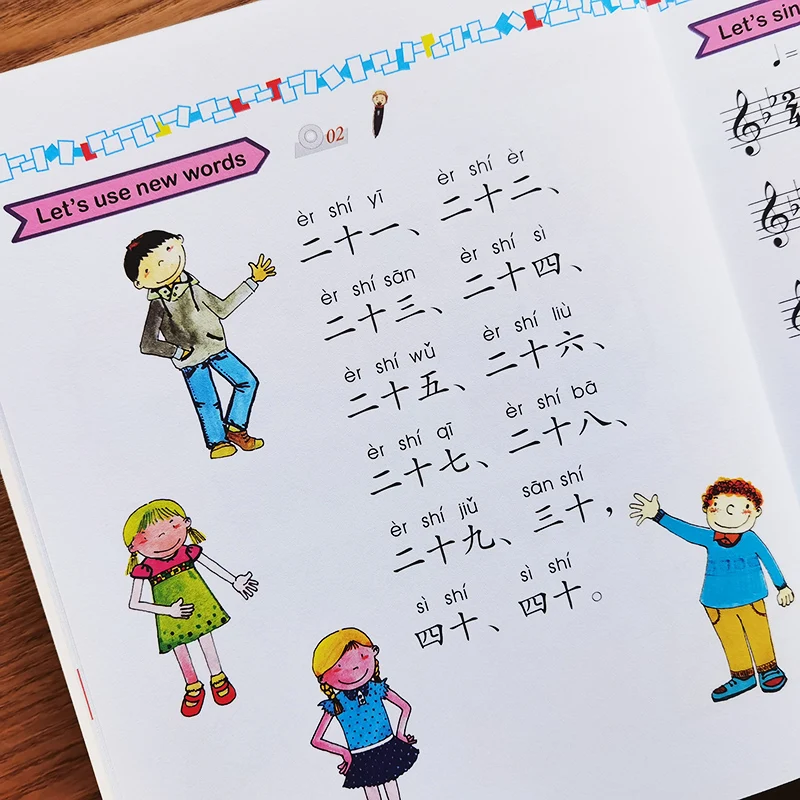 Let's use new words
02
èr shí yī èr shí èr
二十一、二十二、
èr shí sān èr shí sì
二十三、二十四、
èr shí wǔ èr shí liù
二十五、二十六、
èr shí qī èr shí bā
二十七、二十八、
èr shí jiǔ sān shí
二十九、三十，
sì shí sì shí
四十、四十。
Let's sin